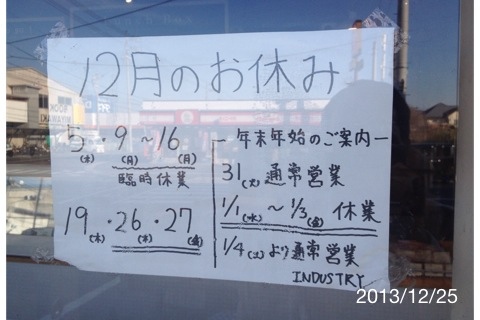 12月のお休み
5(木)・9(月)～16(月)
臨時休業
19(木)・26(木)・27(金)
－年末年始のご案内－
31(火)通常営業
1/1(水)～1/3(金) 休業
1/4(土)より通常営業
INDUSTRY
2013/12/25